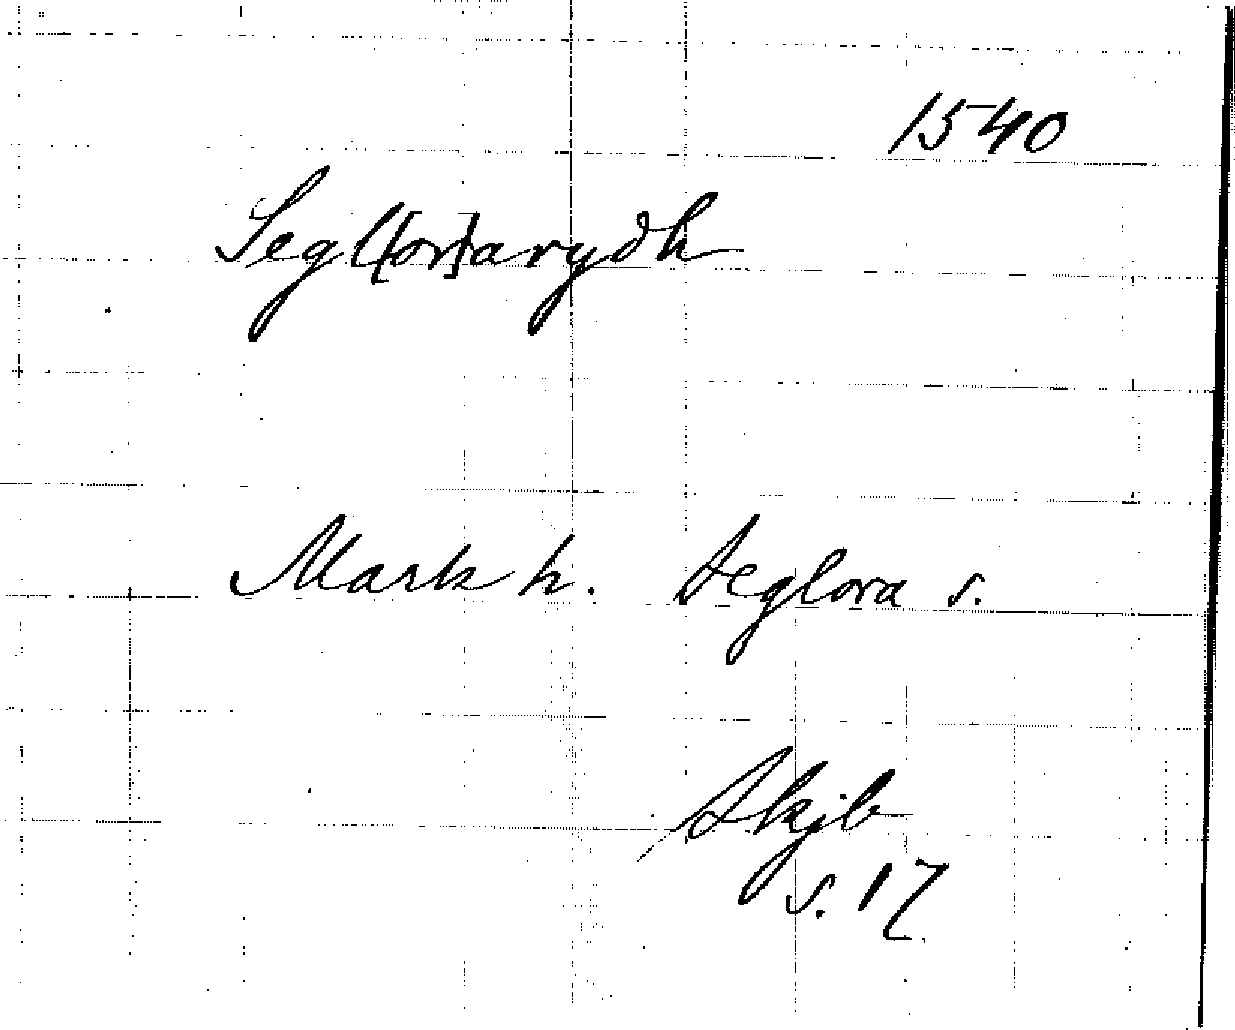 1540
Segl[or]arydh
Mark h. Seglora s.
Skjb
s. 17